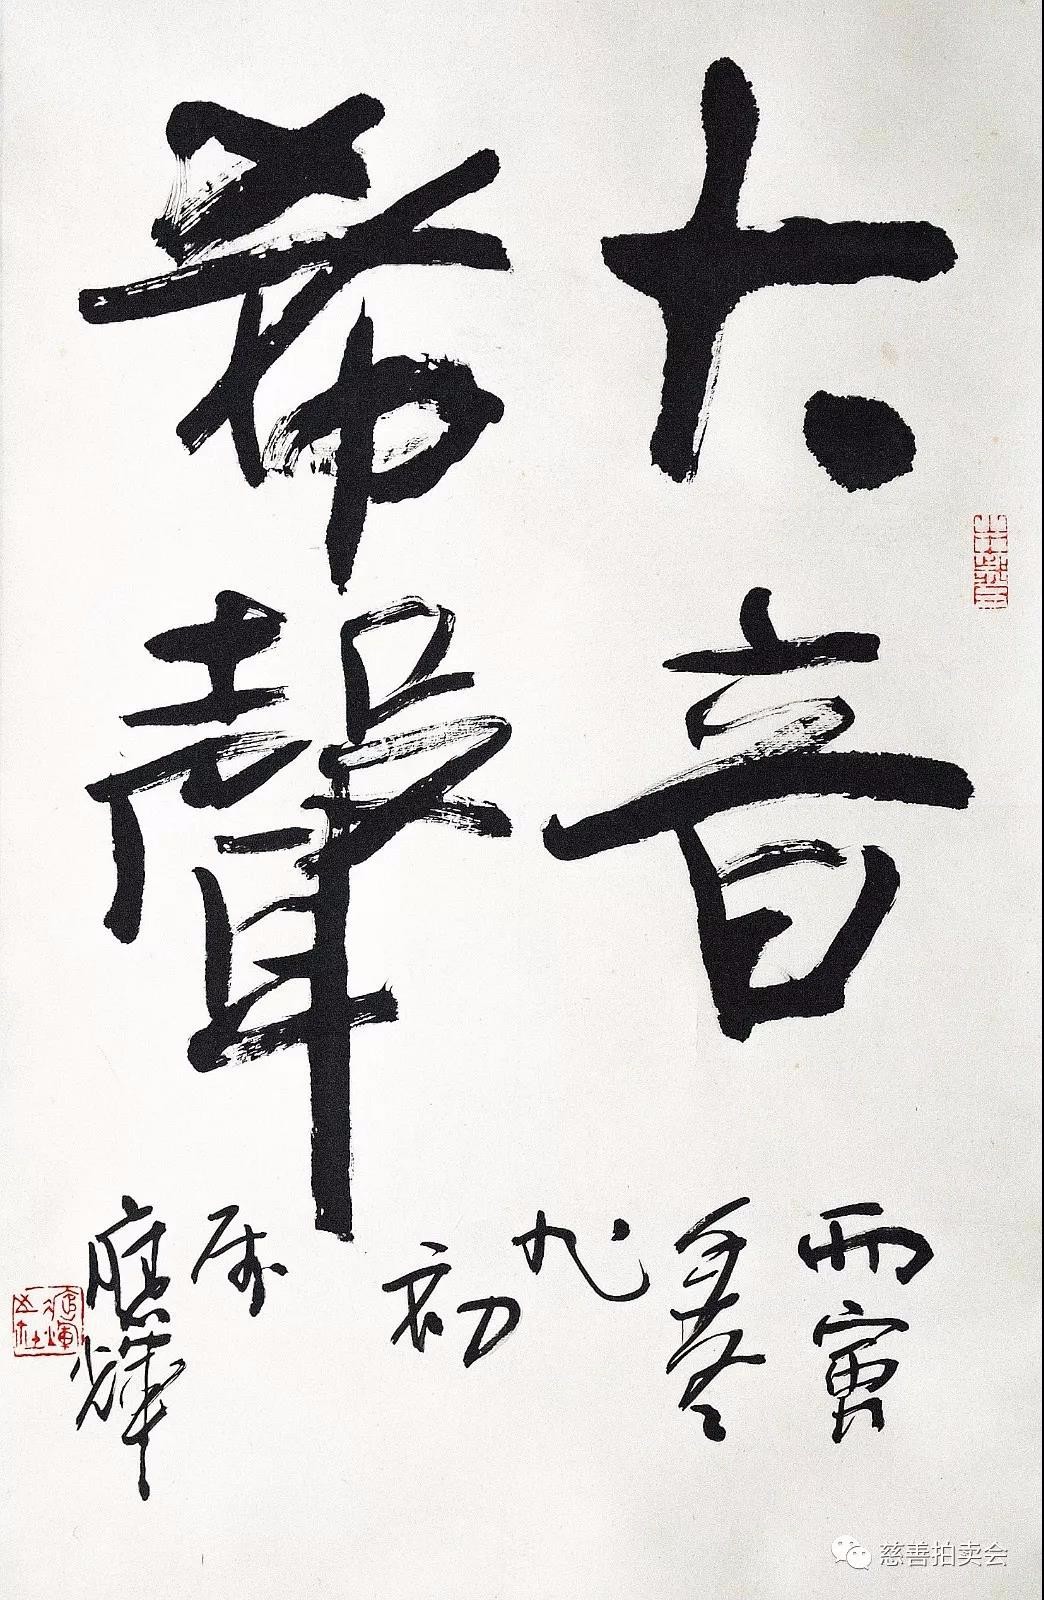 大音
希聲
丙寅
季冬
九
初
應輝
慈善拍卖会